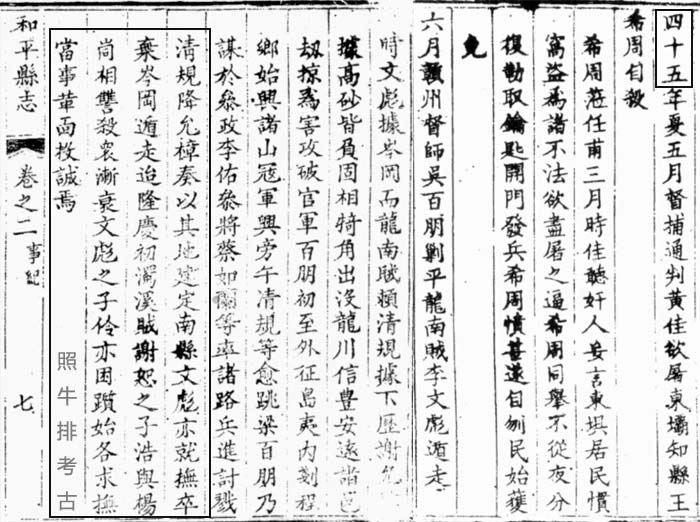 四十五年夏五月督捕通判黃佳欲屠東壩知縣王
希周自殺
希周蒞任甫三月時佳聽奸人妄言東埧居民慣
窩盜爲諸不法欲盡屠之逼希周同舉不從夜分
復勒取鑰匙開門發兵希周憤甚遂自刎民始獲
免
六月贛州督師吳百朋剿平龍南賊李文彪遁走
時文彪據岑岡而龍南賊賴清規據下歷謝允
據高砂皆負固相犄角出沒龍川信豐安遠諸邑
刼掠爲害攻破官軍百朋初至外征島夷內剗程
鄉始興諸山寇軍興旁午清規等愈跳梁百朋乃
謀於叅政李佑叅將蔡如蘭等率諸路兵進討戮
清規降允樟奏以其地建定南縣文彪亦就撫卒
棄岑岡遁走迨隆慶初濁溪賊謝恕之子浩與楊
尚相讐殺衆漸衰文彪之子伶亦困躓始各求撫
當事革面投誠焉
和平縣志
卷之二
事紀
七
照牛排考古